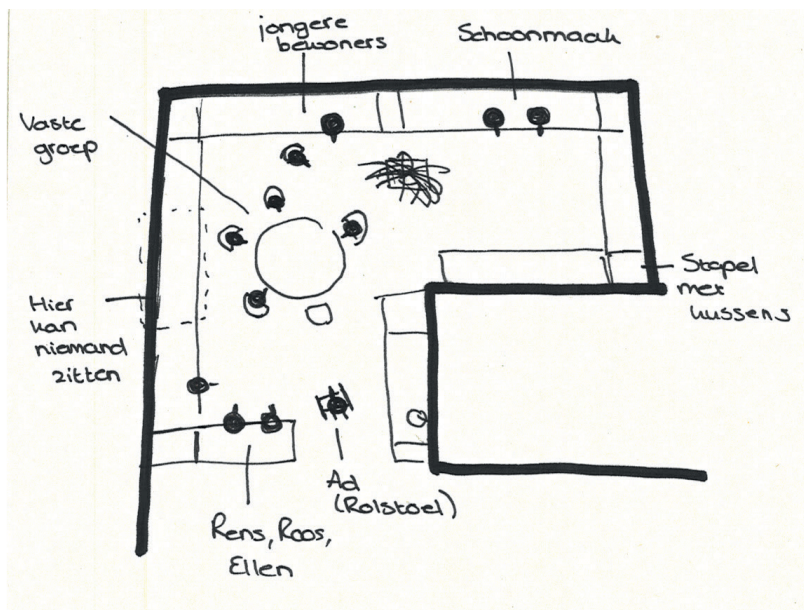 jongere
bewoners
Schoonmaak
Vaste
groep
Hier
kan
niemand
zitten
Stapel
met
kussens
Ad
(Rolstoel)
Rens, Roos,
Ellen